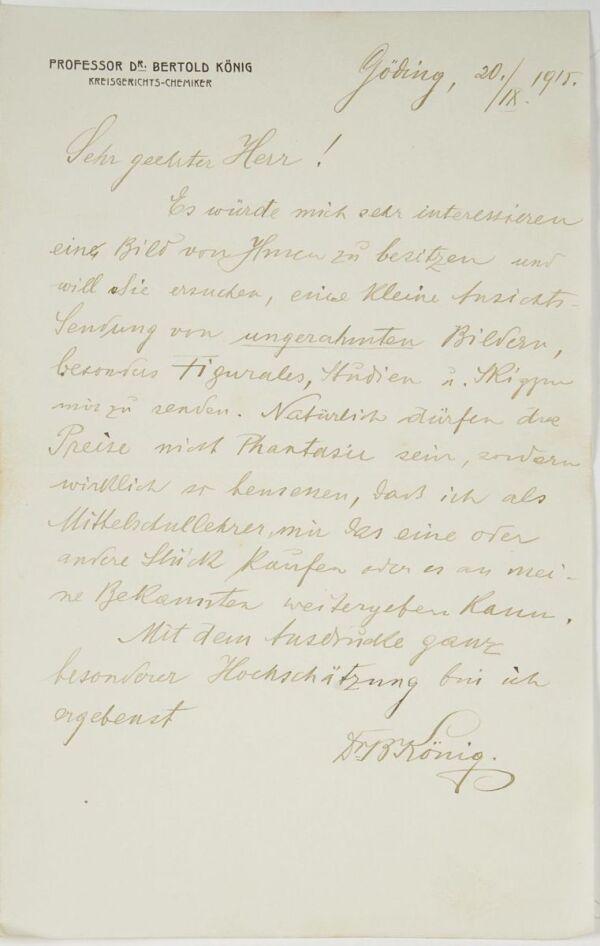 PROFESSOR DR. BERTOLD KÖNIG
KREISGERICHTS-CHEMIKER
Göding, 20./IX. 1915.
Sehr geehrter Herr!
Es würde mich sehr interessieren
ein Bild von Ihnen zu besitzen und
will Sie ersuchen, eine kleine Ansichts-
Sendung von ungerahmten Bildern,
besonders Figurales, Studien u. Skizzen
mir zu senden. Natürlich dürfen die
Preise nicht Phantasie sein, sondern
wirklich so bemessen, daß ich als
Mittelschullehrer, mir das eine oder
andere Stück kaufen oder es an mei-
ne Bekannten weitergeben kann.
Mit dem Ausdrucke ganz
besonderer Hochschätzung bin ich
ergebenst
Dr B König.